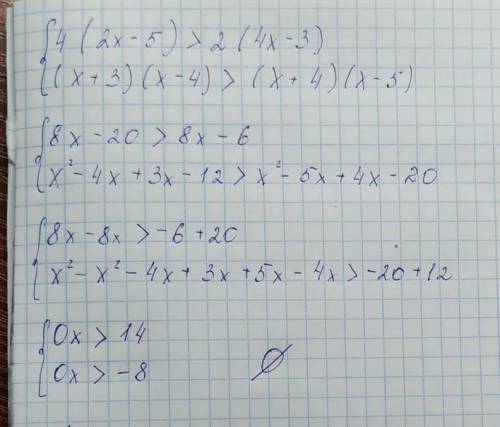 {4 (2x-5) > 2 (4x-3)
{(x+3) (x-4) > (x+4) (x-5)
{8x-20 > 8x-6
{x²-4x+3x-12 > x²-5x+4x-20
{8x-8x > -6+20
{x²-x²-4x+3x+5x-4x > -20+12
{0x > 14
{0x > -8 ∅